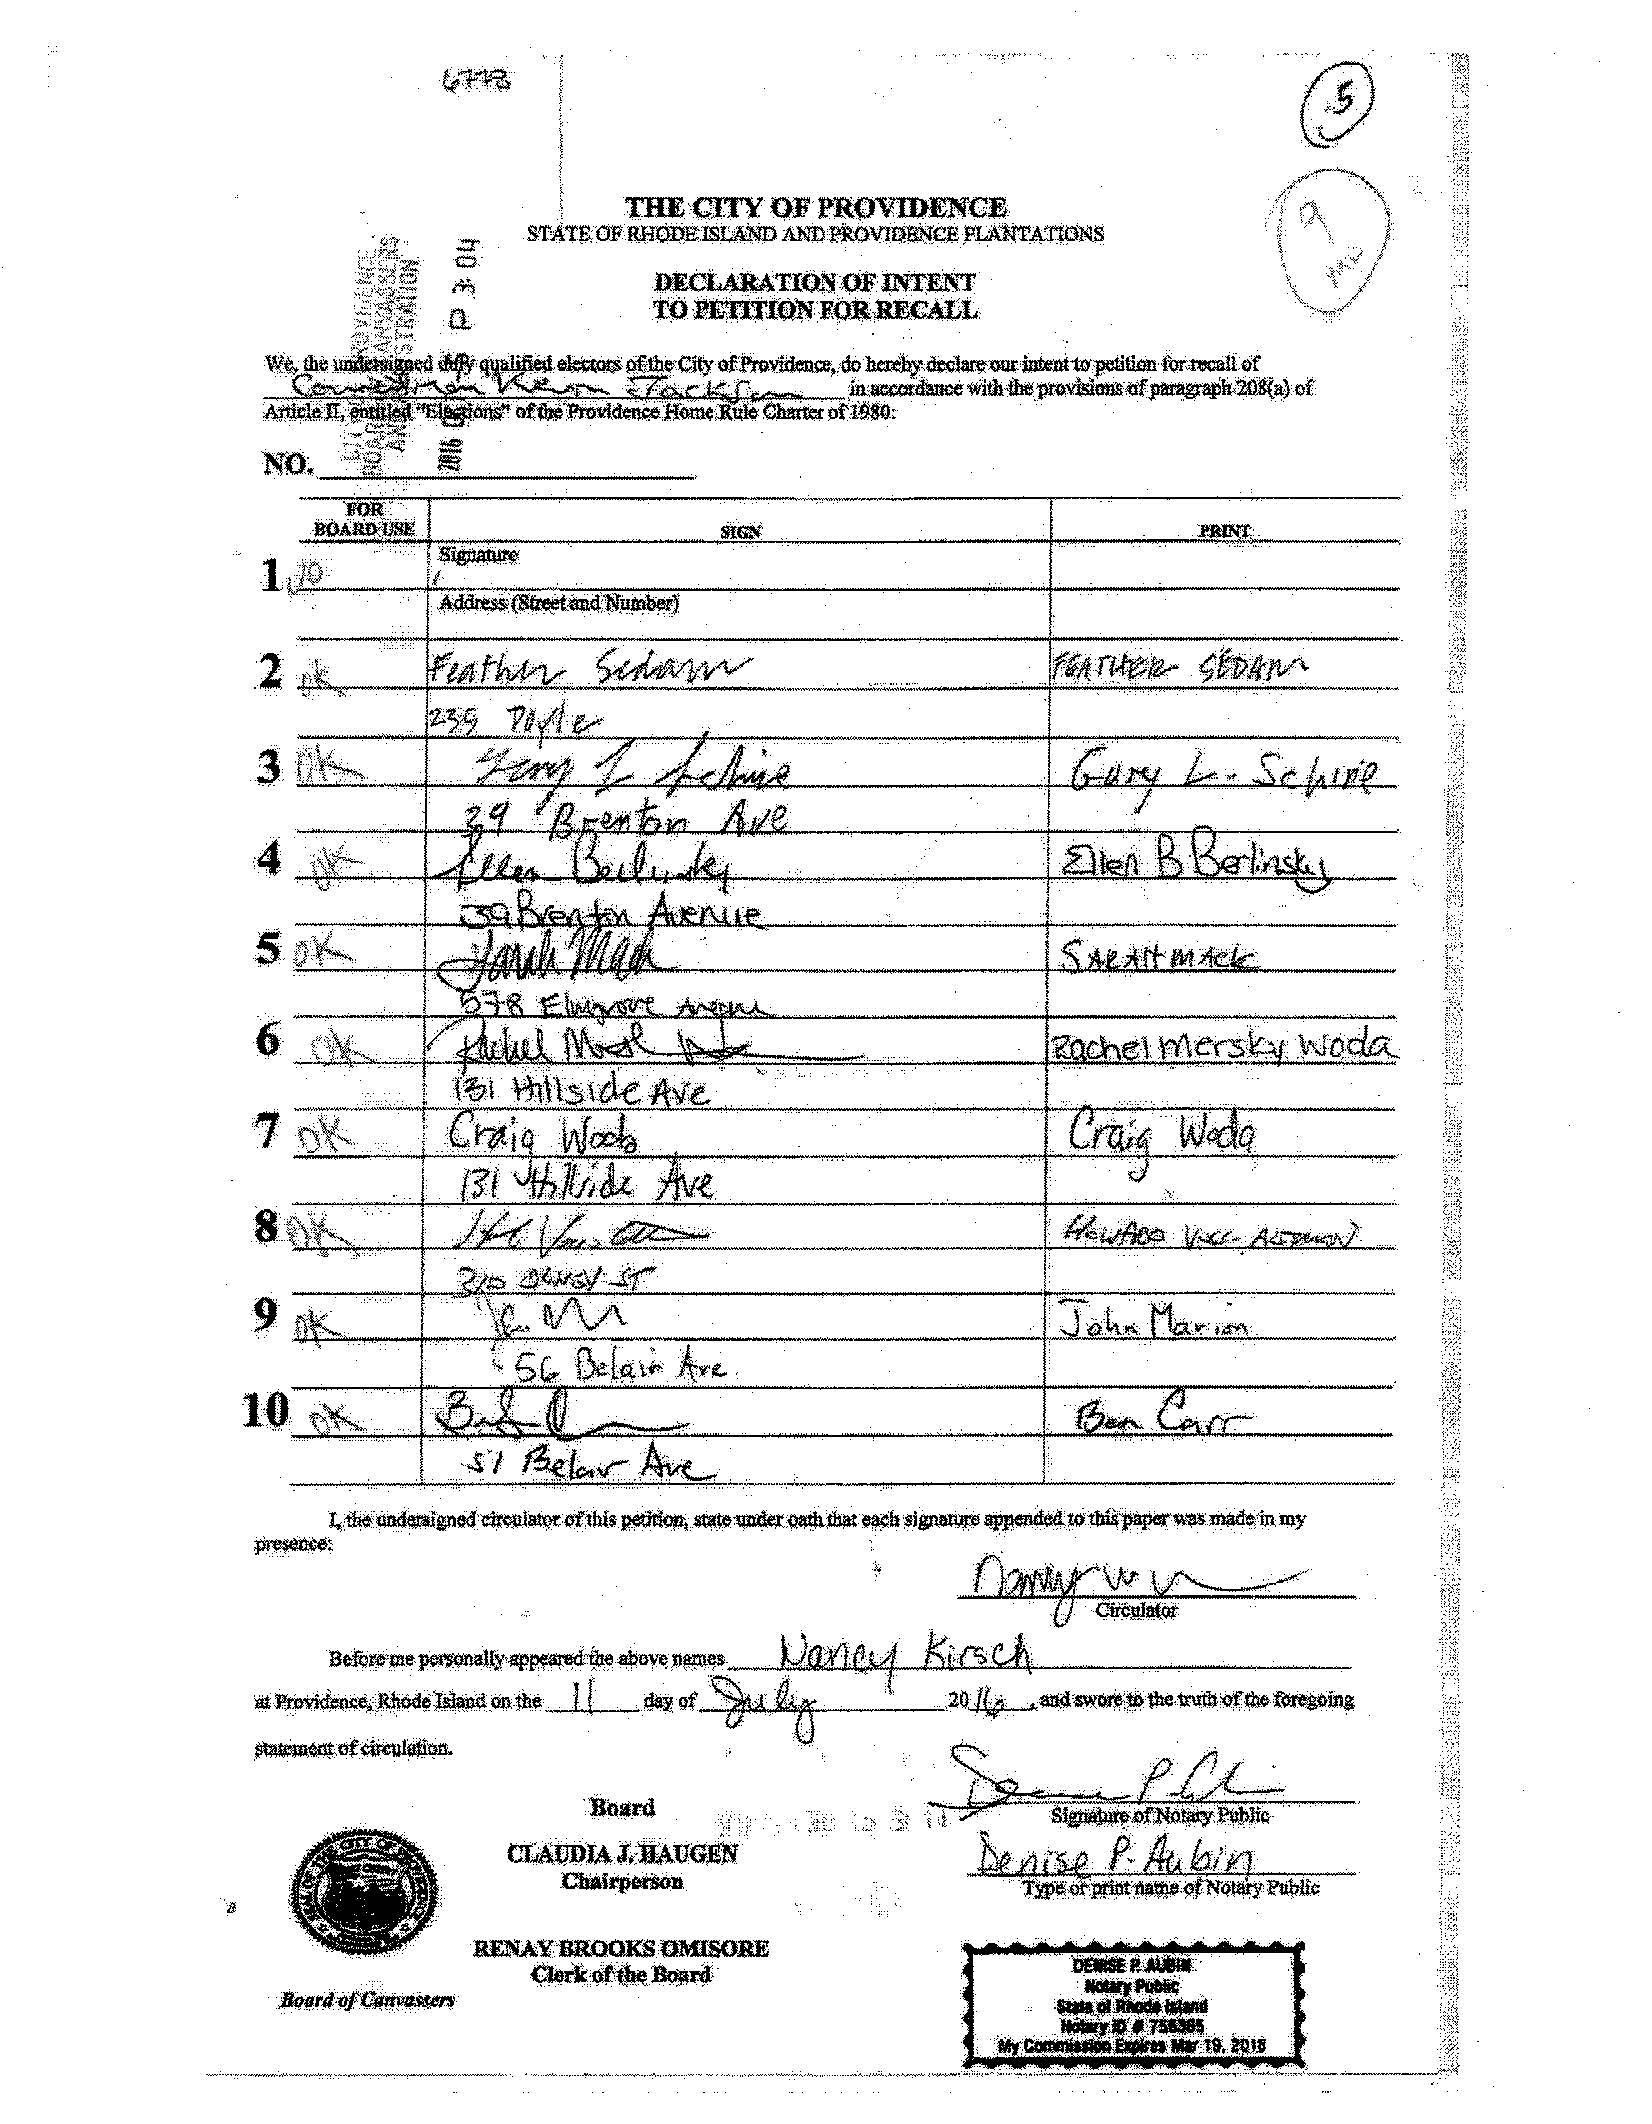 5
9
THE CITY OF PROVIDENCE
STATE OF RHODE ISLAND AND PROVIDENCE PLANTATIONS
P 3:04
DECLARATION OF INTENT
TO PETITION FOR RECALL
We, the undersigned duly qualified electors of the City of Providence, do hereby declare our intent to petition for recall of
Councilman Kevin Jackson in accordance with the provisions of paragraph 208(a) of
Article II, entitled "Elections" of the Providence Home Rule Charter of 1980:
2016
NO.
FOR BOARD USE SIGN PRINT
Signature
1 10
Address (Street and Number)
2 OK Feather Sedam FEATHER SEDAM
239 Doyle
3 OK Gary L Schine Gary L. Schine
39 Brenton Ave
4 OK Ellen Berlinsky Ellen B Berlinsky
39 Brenton Avenue
5 OK Sarah Mack SARAH MACK
578 Elmgrove Avenue
6 OK Rachel Rachel Mersky Woda
131 Hillside Ave
7 OK Craig Woda Craig Woda
131 Hillside Ave
8 OK
OLNEY ST
9 OK John Marion
56 Belair Ave
10 OK Ben Carr
51 Belair Ave
I, the undersigned circulator of this petition, state under oath that each signature appended to this paper was made in my
presence:
Nancy
Circulator
Before me personally appeared the above names Nancy Kirsch
at Providence, Rhode Island on the 11 day of July 2016, and swore to the truth of the foregoing
statement of circulation.
Signature of Notary Public
Denise P. Aubin
Type or print name of Notary Public
Board
CLAUDIA J. HAUGEN
Chairperson
RENAY BROOKS OMISORE
Clerk of the Board
Board of Canvassers
DENISE P. AUBIN
Notary Public
State of Rhode Island
Notary ID #
My Commission Expires Mar 19,